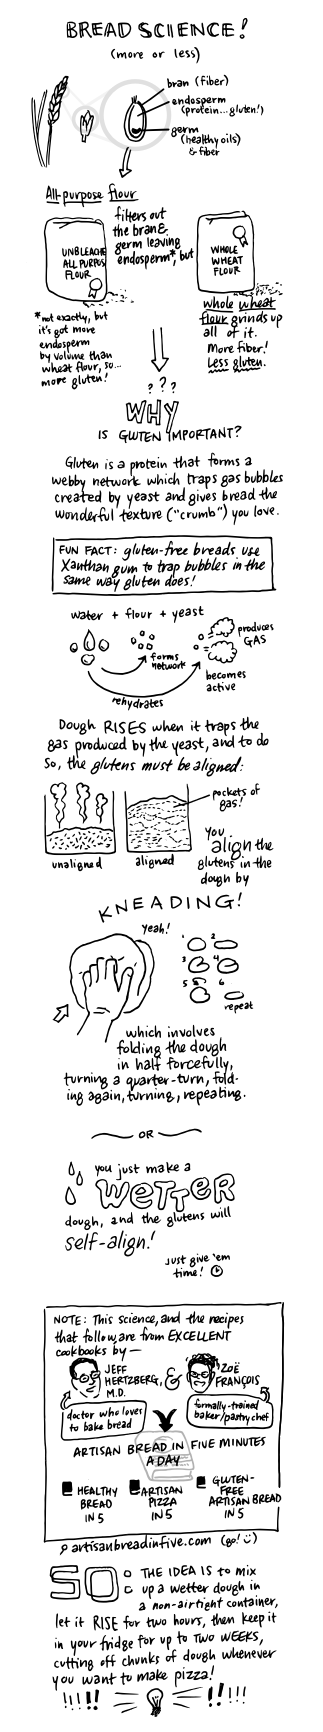 BREAD SCIENCE!
(more or less)
bran (fiber)
endosperm
(protein...gluten!)
germ
(healthy oils)
& fiber
All-purpose flour
filters out
the bran &
germ leaving
endosperm*, but
UNBLEACHE
ALL PURPOS
FLOUR
WHOLE
WHEAT
FLOUR
*not exactly, but
it's got more
endosperm
by volume than
wheat flour, so...
more gluten!
whole wheat
flour grinds up
all of it.
More fiber!
Less gluten.
? ? ?
WHY
IS GLUTEN IMPORTANT?
Gluten is a protein that forms a
webby network which traps gas bubbles
created by yeast and gives bread the
wonderful texture ("crumb") you love.
FUN FACT: gluten-free breads use
Xanthan gum to trap bubbles in the
same way gluten does!
water + flour + yeast
produces
GAS
forms
network
becomes
active
rehydrates
Dough RISES when it traps the
gas produced by the yeast, and to do
so, the glutens must be aligned:
pockets of
gas!
unaligned
aligned
You
align the
glutens in the
dough by
KNEADING!
yeah!
1 2
3 4
5 6
repeat
which involves
folding the dough
in half forcefully,
turning a quarter-turn, fold-
ing again, turning, repeating.
OR
you just make a
WETTER
dough, and the glutens will
self-align!
Just give 'em
time!
NOTE: This science, and the recipes
that follow, are from EXCELLENT
cookbooks by—
JEFF
HERTZBERG,
M.D.
&
ZOË
FRANÇOIS
doctor who loves
to bake bread
formally-trained
baker/pastry chef
ARTISAN BREAD IN FIVE MINUTES
A DAY
HEALTHY
BREAD
IN 5
ARTISAN
PIZZA
IN 5
GLUTEN-
FREE
ARTISAN BREAD
IN 5
artisanbreadinfive.com (go! :)
SO: THE IDEA IS to mix
up a wetter dough in
a non-airtight container,
let it RISE for two hours, then keep it
in your fridge for up to TWO WEEKS,
cutting off chunks of dough whenever
you want to make pizza!
!!!!! !!!!!